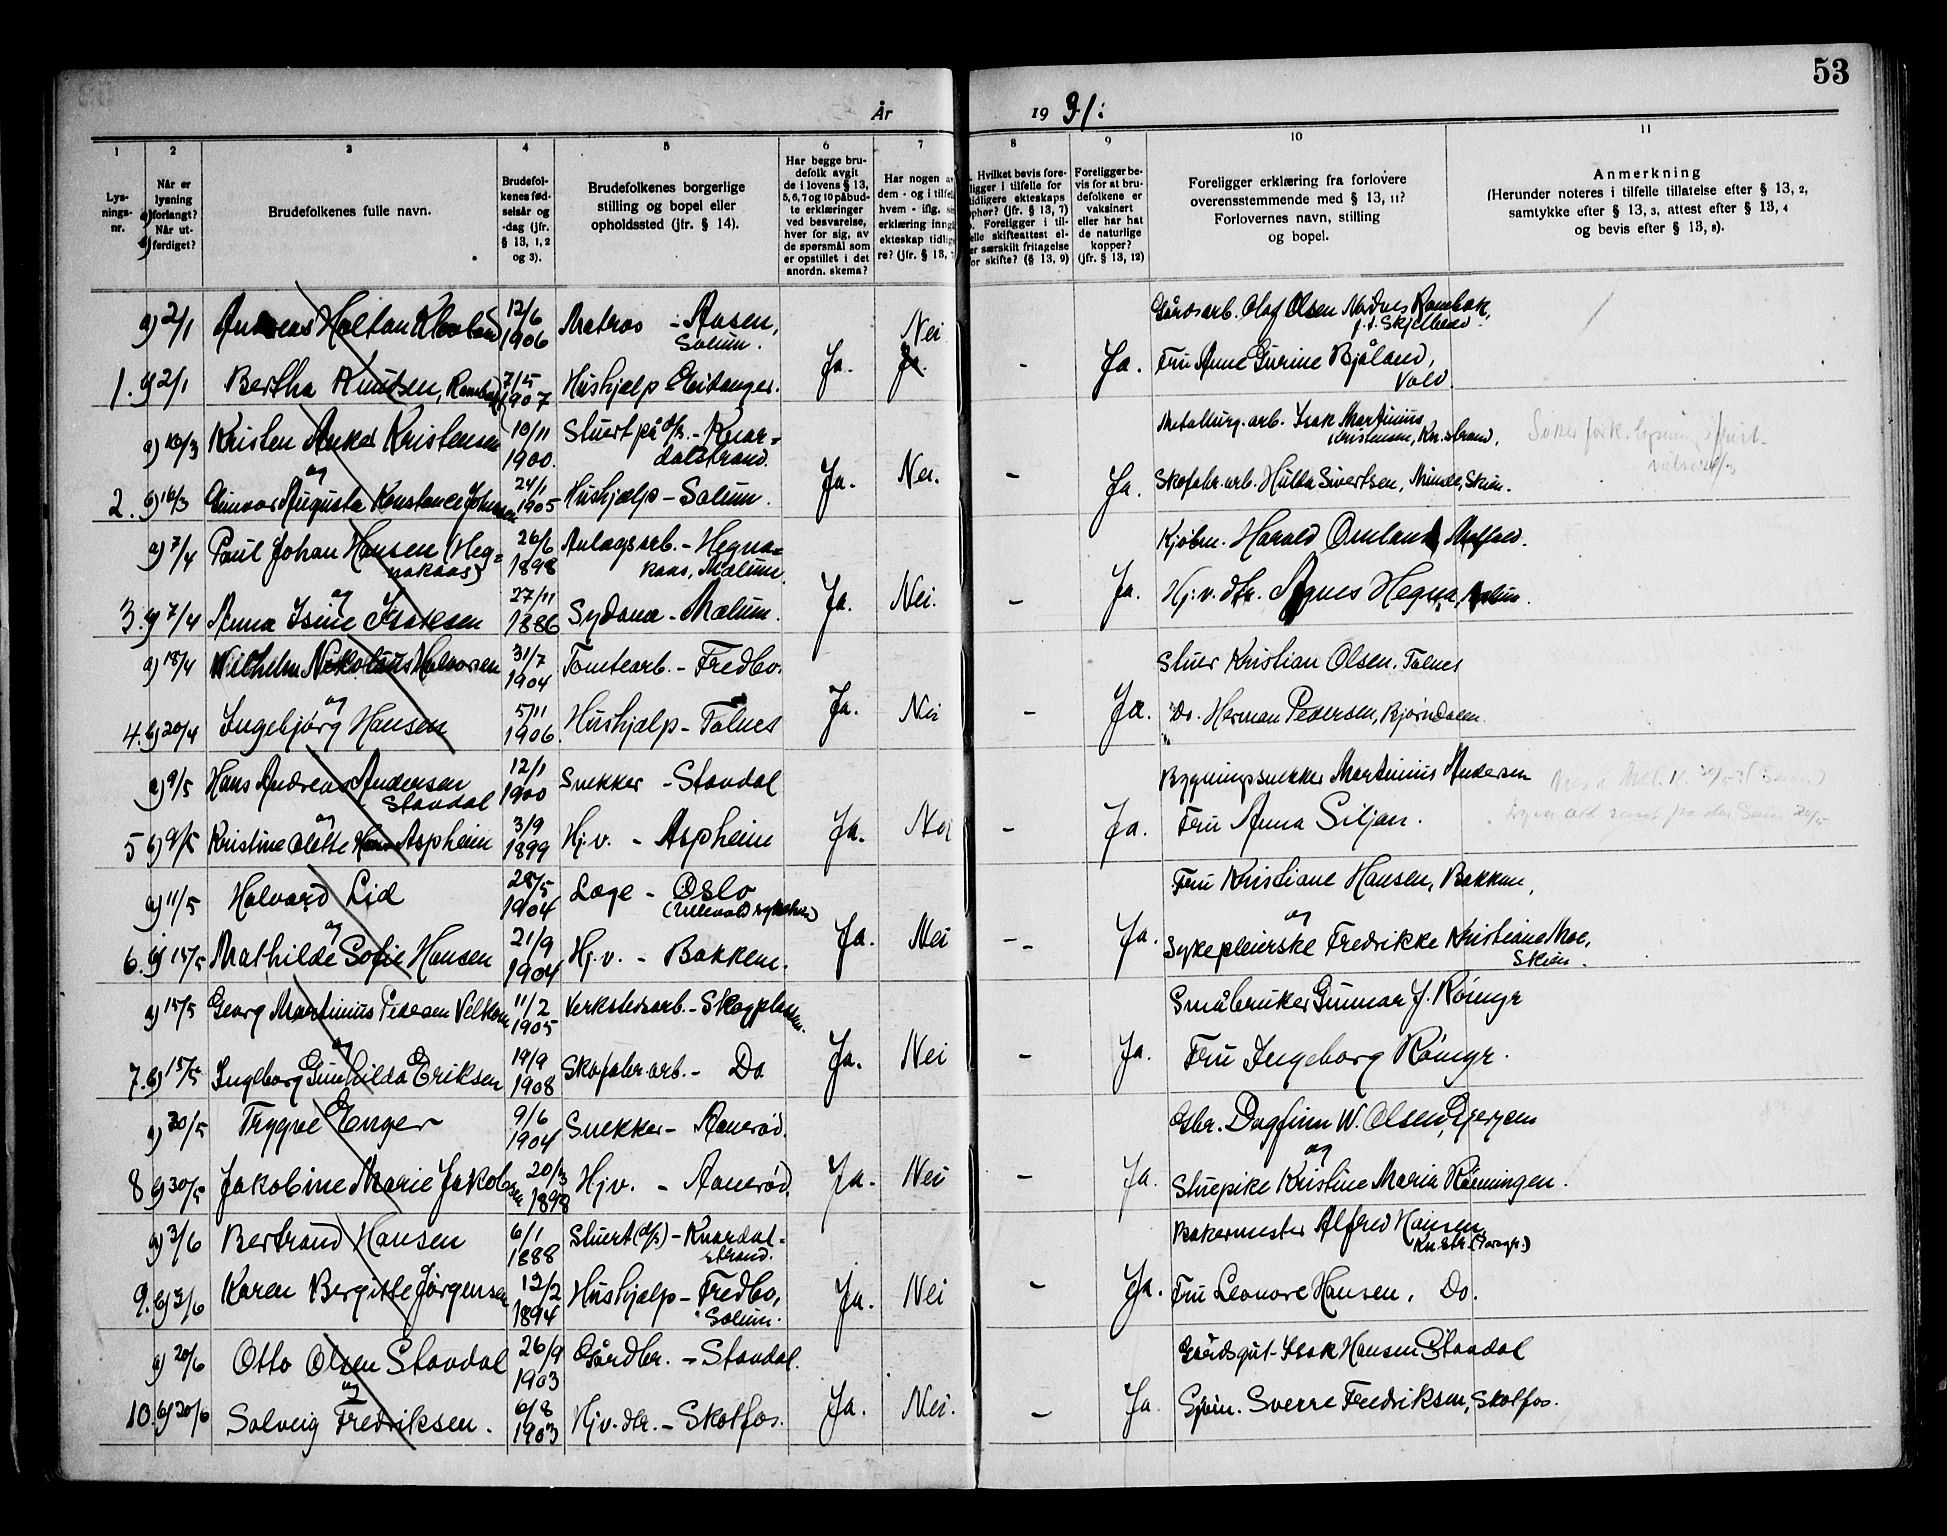 53
År 1931:
1
2
3
4
5
6
7
8
9
10
11
Lys-
nings-
nr.
Når er
lysning
forlangt?
Når ut-
ferdiget?
Brudefolkenes fulle navn.
Brudefol-
kenes fød-
selsår og
-dag (jfr.
§ 13, 1, 2
og 3).
Brudefolkenes borgerlige
stilling og bopel eller
opholdssted (jfr. § 14).
Har begge bru-
defolk avgit
de i lovens § 13,
5, 6, 7 og 10 påbud-
te erklæringer
ved besvarelse,
hver for sig, av
de spørsmål som
er opstillet i det
anordn. skema?
Har nogen a
dem - og i tilfel
hvem - iflg.
erklæring inngå
ekteskap tidlig
re? (jfr. § 13,
Hvilket bevis fore-
ligger i tilfelle for
tidligere ekteskaps
ophør? (jfr. § 13, 7)
Foreligger i til-
elle skifteattest el-
er særskilt fritagelse
for skifte? (§ 13, 9)
Foreligger be-
vis for at bru-
defolkene er
vaksinert
eller har hat
de naturlige
kopper?
(jfr. § 13, 12)
Foreligger erklæring fra forlovere
overensstemmende med § 13, 11?
Forlovernes navn, stilling
og bopel.
Anmerkning
(Herunder noteres i tilfelle tillatelse efter § 13, 2,
samtykke efter § 13, 3, attest efter § 13, 4
og bevis efter § 13, 8).
a) 2/1 Andreas Holtan 12/6 1906 Matros - Aasen, Solum. Nei Gårdsarb. Olaf Olsen
1. b) 2/1 Bertha Knutsen, 7/5 1907 Hushjælp Eidanger. Ja. - Ja. Fru Anne Gurine Bjåland, Vold
a) 10/3 Kristen Anker Kristensen 10/11 1900. Stuert på d/s. - Knar-dalstrand. Metallurg. arb. Isak Martinius Kristensen, Kn.strand,
og
2. b) 16/3 Gunvor Augusta Konstance Johnsen 24/1 1905 Hushjælp - Solum. Ja. Nei. - Ja. Skofabr. arb. Hulda Sivertsen, Minde, Skien.
a) 7/4 Paul Johan Hansen (Heg-nakaas) 26/6 1898 Anlagsarb. - Hegna-kaas, Mælum. Kjøbm. Harald Omland
og
3. b) 7/4 Anna Isine Isaksen 27/11 1886 Sydame - Mælum. Ja. Nei. - Ja. Hj. v. dtr. Agnes Hegna,
a) 18/4 Wilhelm Nikolaus Halvorsen 31/7 1904 Tomtearb. - Fredbo. Stuer Kristian Olsen. Tolnes
og
4. b) 20/4 Ingebjørg Hansen 5/11 1906. Hushjælp - Tolnes Ja. Nei - Ja. Do. Herman Pedersen, Bjørndalen.
a) 9/5 Hans Andreas Andersen Stavdal 12/1 1900 Snekker - Stavdal Bygningssnekker Martinius Andersen
og
5 b) 9/5 Kristine Olette Aspheim 3/9 1899 Hj. v. - Aspheim Ja. Nei - Ja. Fru Anna Siljan.
a) 11/5 Halvard Lid 28/5 1904 Læge - Oslo Fru Kristiane Hansen, Bakken,
og og
6. b) 15/5 Mathilde Sofie Hansen 21/9 1904 Hj. v. - Bakken. Ja. Nei - Ja. Sykepleierske Fredrikke Kristiane Moe, Skien.
a) 15/5 Georg Martinius Pedersen 11/2 1905 Verkstedsarb. - Småbruker Gunnar J. Röimyr
og
7. b) 15/5 Ingeborg Gunhilda Eriksen 19/9 1908 Skofabr. arb. - Do Ja. Nei - Ja. Fru Ingeborg Röimyr.
a) 30/5 Trygve Enger 9/6 1904 Snekker - Aanerød. Gbr. Dagfinn W. Olsen, Gjerjem
og
8 b) 30/5 Jakobine Marie Jakobsen 20/3 1898 Hj v. - Aanerød. Ja. Nei - Ja. Stuepike Kristine Maria Rönningen.
a) 3/6 Bertrand Hansen 6/1 1888 Stuert (d/s) - Knardal-strand. Bakermester Alfred Hansen
9. b) 3/6 Karen Bergitte Jørgensen 12/2 1894 Hushjælp - Fredbo, Solum. Ja. Nei - Ja. Fru Leonore Hansen, Do.
a) 20/6 Otto Olsen Stavdal 26/9 1903 Gårdbr. - Stavdal. Gårdsgut Isak Hansen Stavdal
og
10. b) 20/6 Solveig Fredriksen. 6/8 1903 Hj v. dtr. - Skotfos. Ja. Nei. - Ja. Sverre Fredriksen, Skotfos.